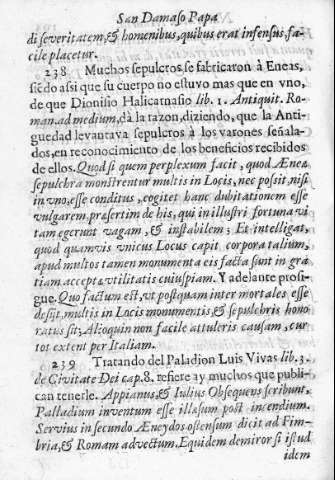 San Damaso Papa
di severitatem, & homenibus, quibus erat infensus, fa-
cile placetur.
238 Muchos sepulcros se fabricaron à Eneas,
siẽdo assi que su cuerpo no estuvo mas que en vno,
de que Dionisio Halicarnasio lib. 1. Antiquit. Ro-
man. ad medium, dà la razon, diziendo, que la Anti-
guedad levantava sepulcros à los varones señala-
dos, en reconocimento de los beneficios recibidos
de ellos. Quod si quem perplexum facit, quod Æneæ
sepulchra monstrentur multis in Locis, nec possit, nisi
in vno, esse conditus, cogitet hanc dubitationem esse
vulgarem, præsertim de his, qui in illustri fortuna vi-
tam egerunt vagam, & instabilem; Et intelligat,
quod quamvis vnicus Locus capit corpora talium,
apud multos tamen monumenta eis facta sunt in gra-
tiam acceptæ vtilitatis cuiuspiam. Y adelante prosi-
gue. Quo factum est, vt postquam inter mortales esse
desijt, multis in Locis monumentis, & sepulchris hono-
ratus sit; Alioquin non facile attuleris causam, cur
tot extent per Italiam.
239 Tratando del Paladion Luis Vivas lib. 3.
de Civitate Dei cap. 8. refiere ay muchos que publi-
can tenerle. Appianus, & Iulius Obsequens scribunt,
Palladium inventum esse illæsum post incendium.
Servius in secundo Æneydos ostensum dicit ad Fim-
bria, & Romam advectum. Equidem demiror si istud
idem